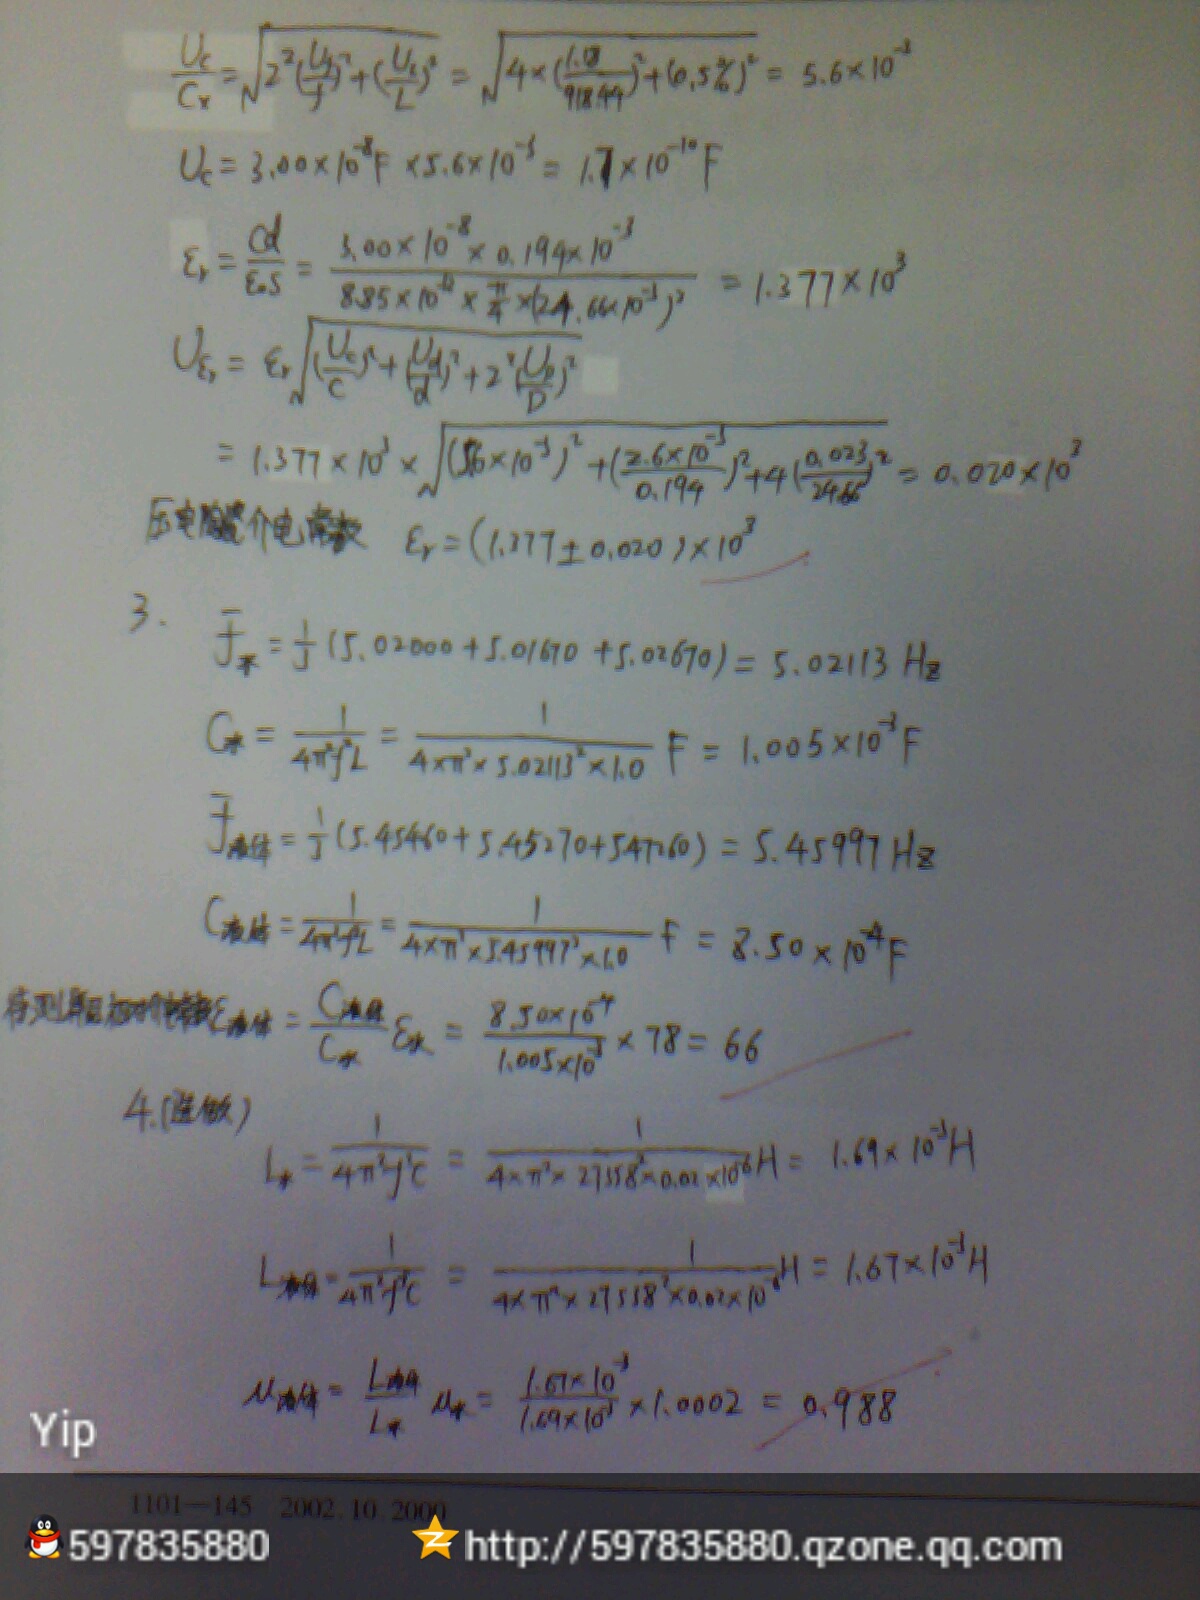 U_c/C_x = √(2²(U_f/f)² + (U_L/L)²) = √(4×(1.18/918.44)² + (0.5%)²) = 5.6×10⁻³
U_c = 3.00×10⁻⁸F ×5.6×10⁻³ = 1.7×10⁻¹⁰F
ε_r = Cd/ε₀S = 3.00×10⁻⁸×0.194×10⁻³ / 8.85×10⁻¹²×π/4×(24.66×10⁻³)² = 1.377×10³
U_εr = ε_r√((U_c/C)² + (U_d/d)² + 2²(U_D/D)²)
= 1.377×10³×√((5.6×10⁻³)² + (2.6×10⁻³/0.194)² + 4(0.023/24.66)²) = 0.020×10³
压电陶瓷介电常数 ε_r = (1.377±0.020)×10³
3.
f̄水 = 1/3 (5.02000+5.01670+5.02670) = 5.02113 Hz
C水 = 1/4π²f²L = 1/4×π²×5.02113²×1.0 F = 1.005×10⁻³F
f̄液体 = 1/3 (5.45460+5.45270+5.47260) = 5.45997 Hz
C液体 = 1/4π²f²L = 1/4×π²×5.45997²×1.0 F = 8.50×10⁻⁴F
ε液体 = C液体/C水 ε水 = 8.50×10⁻⁴/1.005×10⁻³ × 78 = 66
4.(选做)
L水 = 1/4π²f²C = 1/4×π²×27358²×0.02×10⁻⁶ H = 1.69×10⁻³H
L液体 = 1/4π²f²C = 1/4×π²×27558²×0.02×10⁻⁶ H = 1.67×10⁻³H
μ液体 = L液体/L水 μ水 = 1.67×10⁻³/1.69×10⁻³ ×1.0002 = 0.988
Yip
1101—145 2002.10.2000
597835880 http://597835880.qzone.qq.com